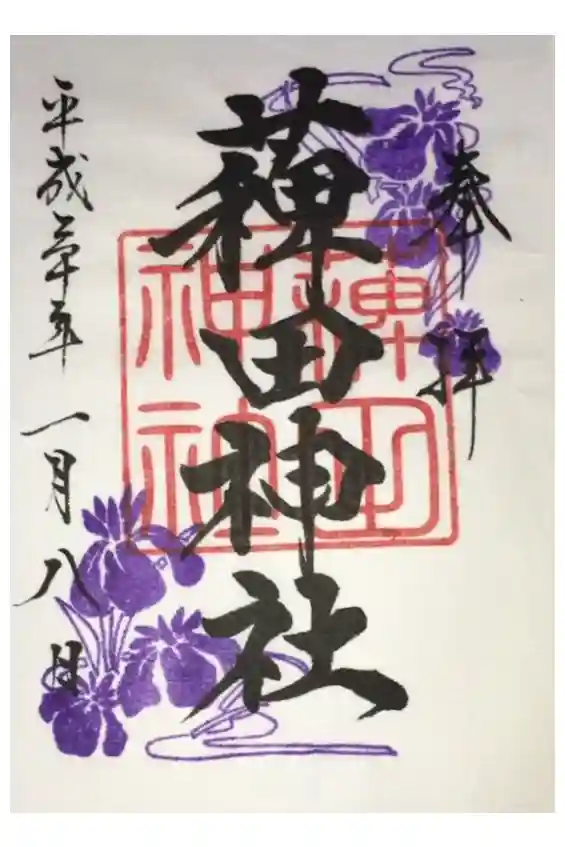 奉拝
薭田神社
平成二十五年一月八日
薭田
神社